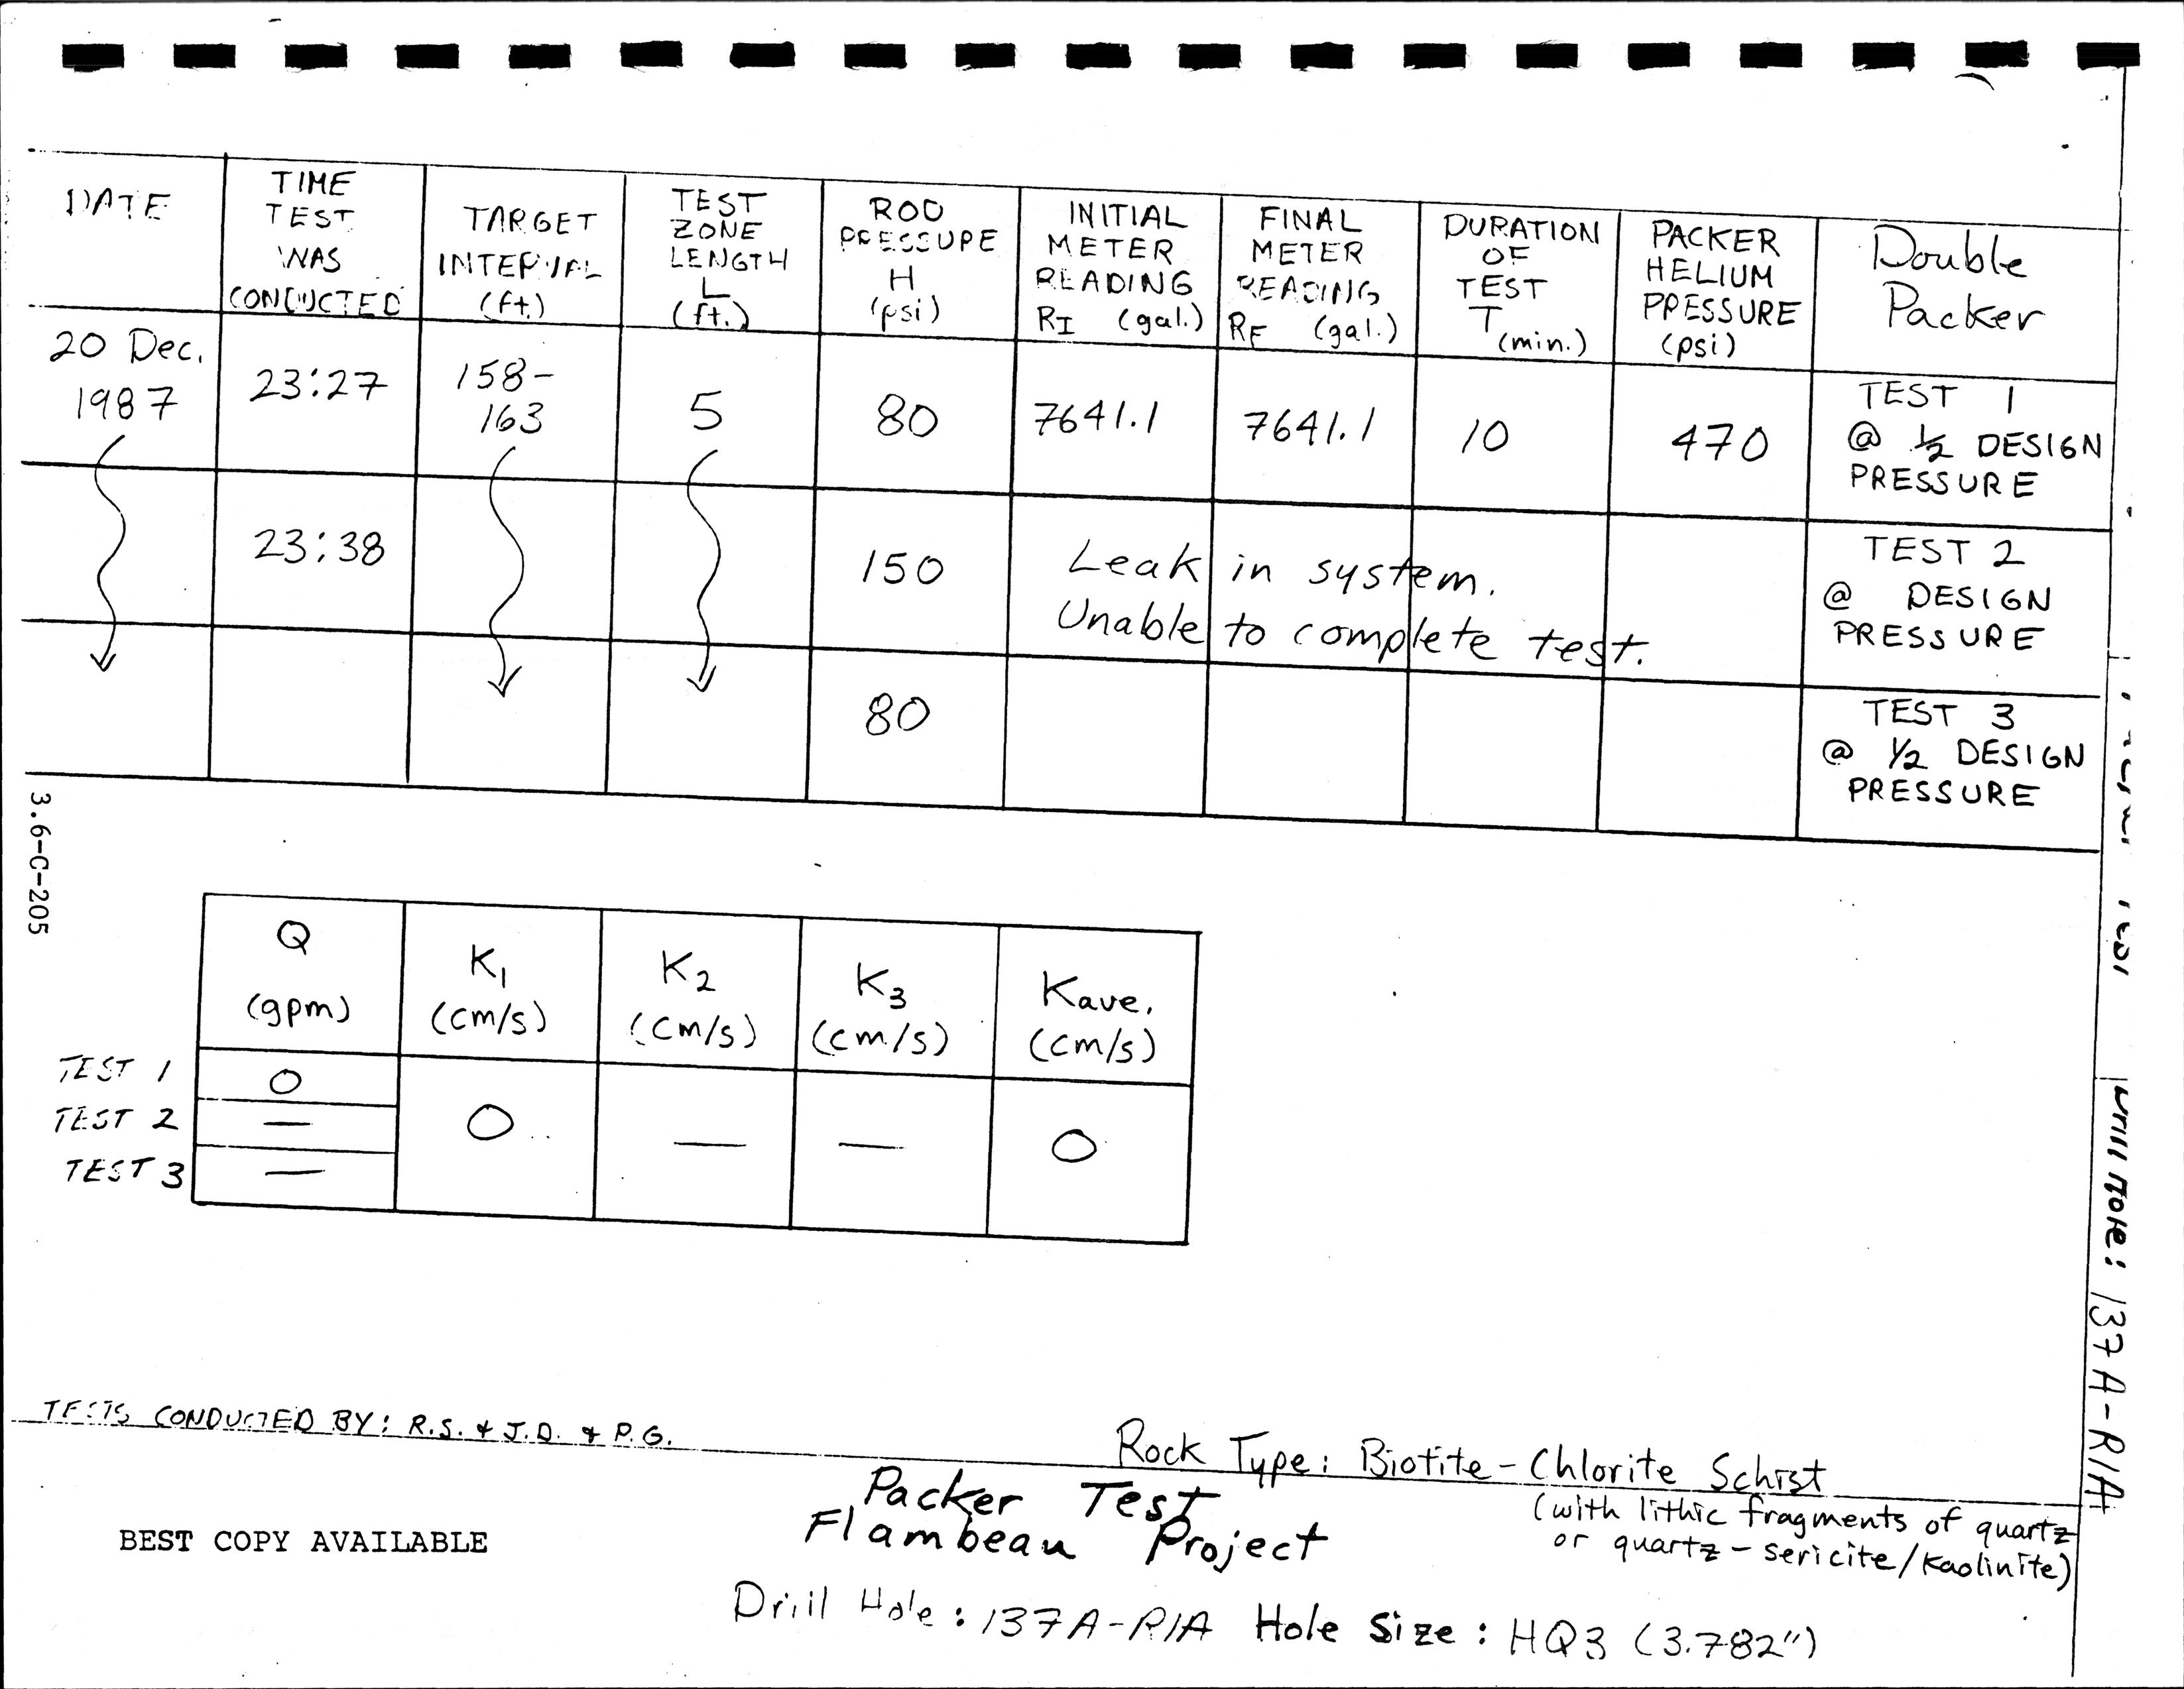 DATE
TIME
TEST
WAS
CONDUCTED
TARGET
INTERVAL
(ft.)
TEST
ZONE
LENGTH
L
(ft.)
ROD
PRESSURE
H
(psi)
INITIAL
METER
READING
RI (gal.)
FINAL
METER
READING
RF (gal.)
DURATION
OF
TEST
T (min.)
PACKER
HELIUM
PRESSURE
(psi)
Double
Packer
20 Dec.
1987
23:27
158-
163
5
80
7641.1
7641.1
10
470
TEST 1
@ 1/2 DESIGN
PRESSURE
23:38
150
Leak in system.
Unable to complete test.
TEST 2
@ DESIGN
PRESSURE
80
TEST 3
@ 1/2 DESIGN
PRESSURE
3.6-C-205
Q
(gpm)
K1
(cm/s)
K2
(cm/s)
K3
(cm/s)
Kave.
(cm/s)
TEST 1
0
TEST 2
—
0
—
—
0
TEST 3
—
TESTS CONDUCTED BY: R.S. & J.D. & P.G.
Rock Type: Biotite-Chlorite Schist
(with lithic fragments of quartz
or quartz-sericite/kaolinite)
Packer Test
Flambeau Project
BEST COPY AVAILABLE
Drill Hole: 137A-R1A Hole Size: HQ3 (3.782")
Drill Hole: 137A-R1A